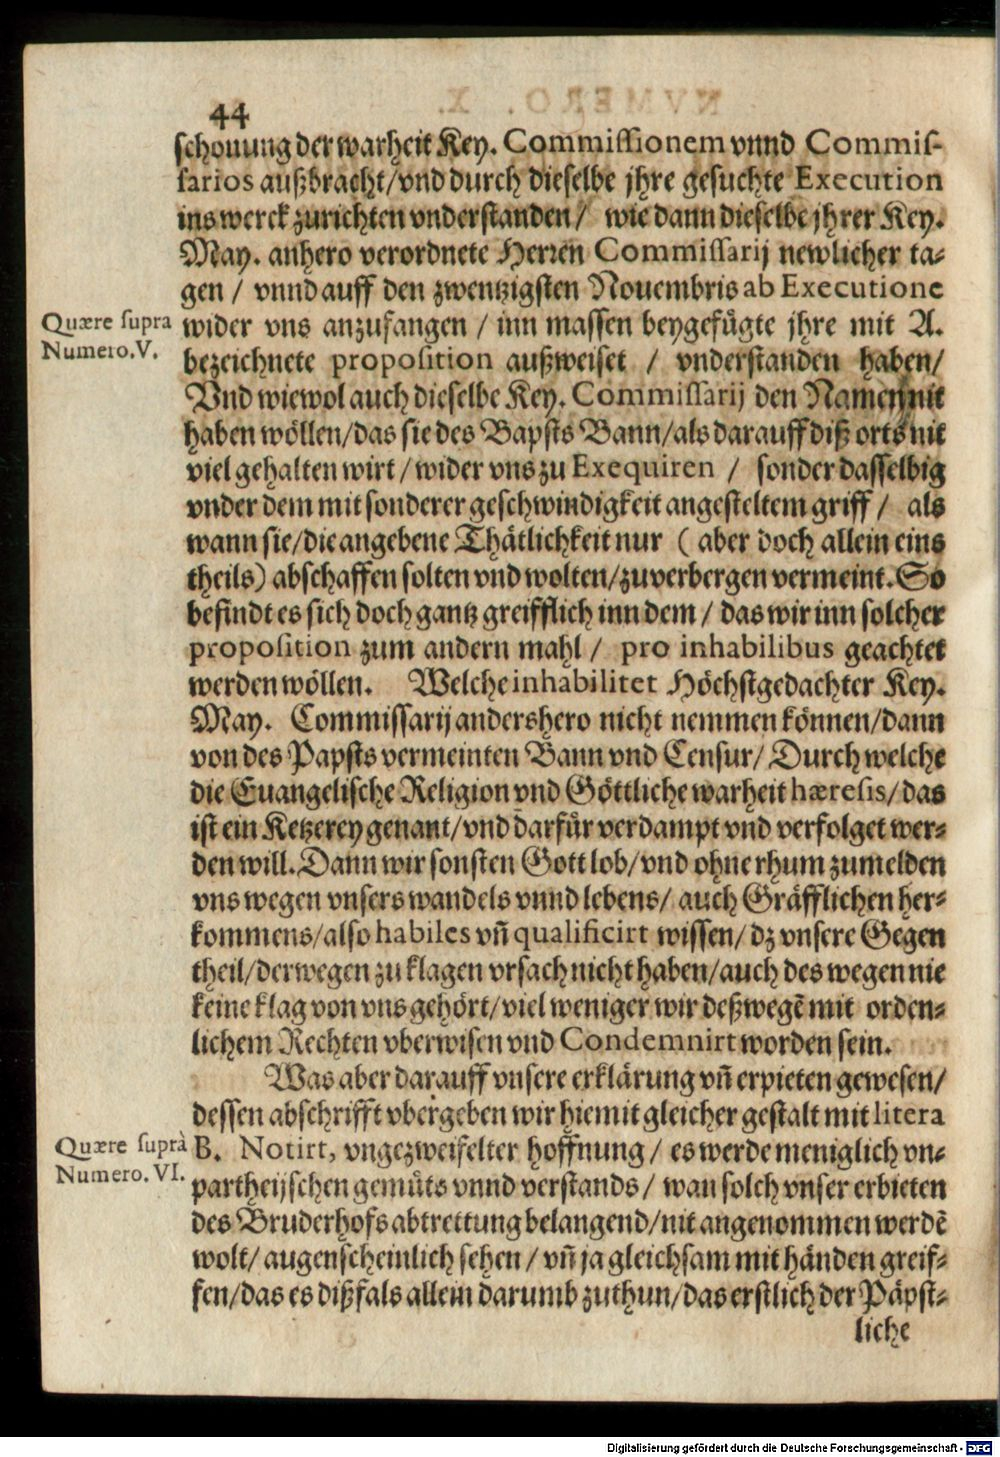 44
schonung der warheit Key. Commissionem vnnd Commis-
sarios außbracht/vnd durch dieselbe jhre gesuchte Execution
ins werck zurichten vnderstanden/ wie dann dieselbe jhrer Key.
May. anhero verordnete Herren Commissarij newlicher ta-
gen / vnnd auff den zwentzigsten Nouembris ab Executione
Quære supra
Numero. V.
wider vns anzufangen / inn massen beygefügte jhre mit A.
bezeichnete proposition außweiset / vnderstanden haben/
Vnd wiewol auch dieselbe Key. Commissarij den Namen nit
haben wöllen/das sie des Bapsts Bann/als darauff diß orts nit
viel gehalten wirt/wider vns zu Exequiren / sonder dasselbig
vnder dem mit sonderer geschwindigkeit angesteltem griff / als
wann sie/die angebene Thätlichkeit nur ( aber doch allein eins
theils) abschaffen solten vnd wolten/zuverbergen vermeint. So
befindt es sich doch gantz greifflich inn dem / das wir inn solcher
proposition zum andern mahl / pro inhabilibus geachtet
werden wöllen. Welche inhabilitet Höchstgedachter Key.
May. Commissarij andershero nicht nemmen können/dann
von des Papsts vermeinten Bann vnd Censur/ Durch welche
die Euangelische Religion vnd Göttliche warheit hæresis/das
ist ein Ketzerey genant/vnd darfür verdampt vnd verfolget wer-
den will. Dann wir sonsten Gott lob/vnd ohne rhum zumelden
vns wegen vnsers wandels vnnd lebens/ auch Gräfflichen her-
kommens/also habiles vn̄ qualificirt wissen/dz vnsere Gegen
theil/derwegen zu klagen vrsach nicht haben/auch des wegen nie
keine klag von vns gehört/viel weniger wir deßwegē mit orden-
lichem Rechten vberwisen vnd Condemnirt worden sein.
Was aber darauff vnsere erklärung vn̄ erpieten gewesen/
dessen abschrifft vbergeben wir hiemit gleicher gestalt mit litera
Quære suprà
Numero. VI.
B. Notirt, vngezweifelter hoffnung / es werde meniglich vn-
partheijschen gemüts vnnd verstands/ wan solch vnser erbieten
des Bruderhofs abtrettung belangend/nit angenommen werdē
wolt/ augenscheinlich sehen / vn̄ ja gleichsam mit händen greif-
fen/das es dißfals allein darumb zuthun/das erstlich der Päpst-
liche
Digitalisierung gefördert durch die Deutsche Forschungsgemeinschaft - DFG